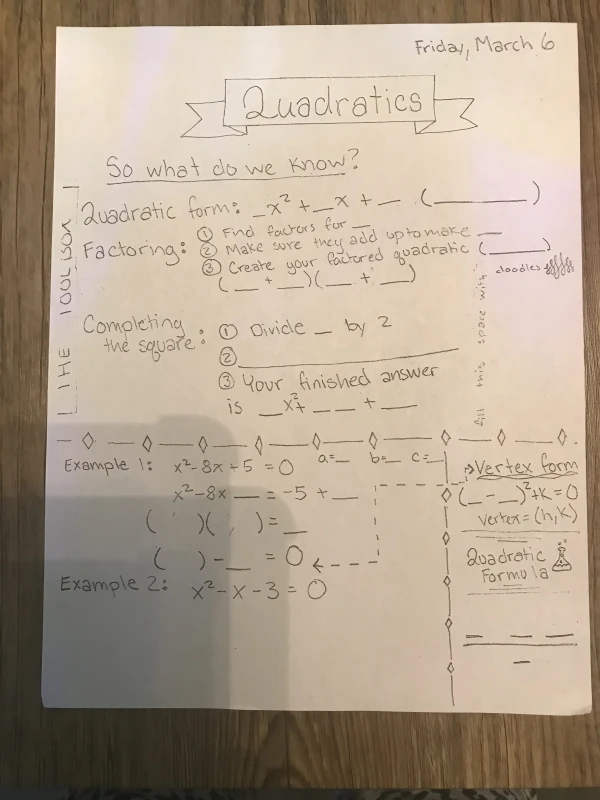 Friday, March 6
Quadratics
So what do we know?
THE TOOL BOX
Quadratic form: _x² + __x + __ (________)
Factoring: ① Find factors for __
② Make sure they add up to make __
③ Create your factored quadratic (_____)
(__ + __)(__ + __)
fill this space with doodles
Completing the square: ① Divide _ by 2
② ____________________
③ Your finished answer
is __x² + __ __ + ___
Example 1: x² - 8x + 5 = 0 a=_ b=_ c=_
x² - 8x __ = -5 + __
(   )(   ) = __
(   ) - __ = 0
Example 2: x² - x - 3 = 0
Vertex form
(_ - _)² + K = 0
vertex = (h, K)
Quadratic
Formula